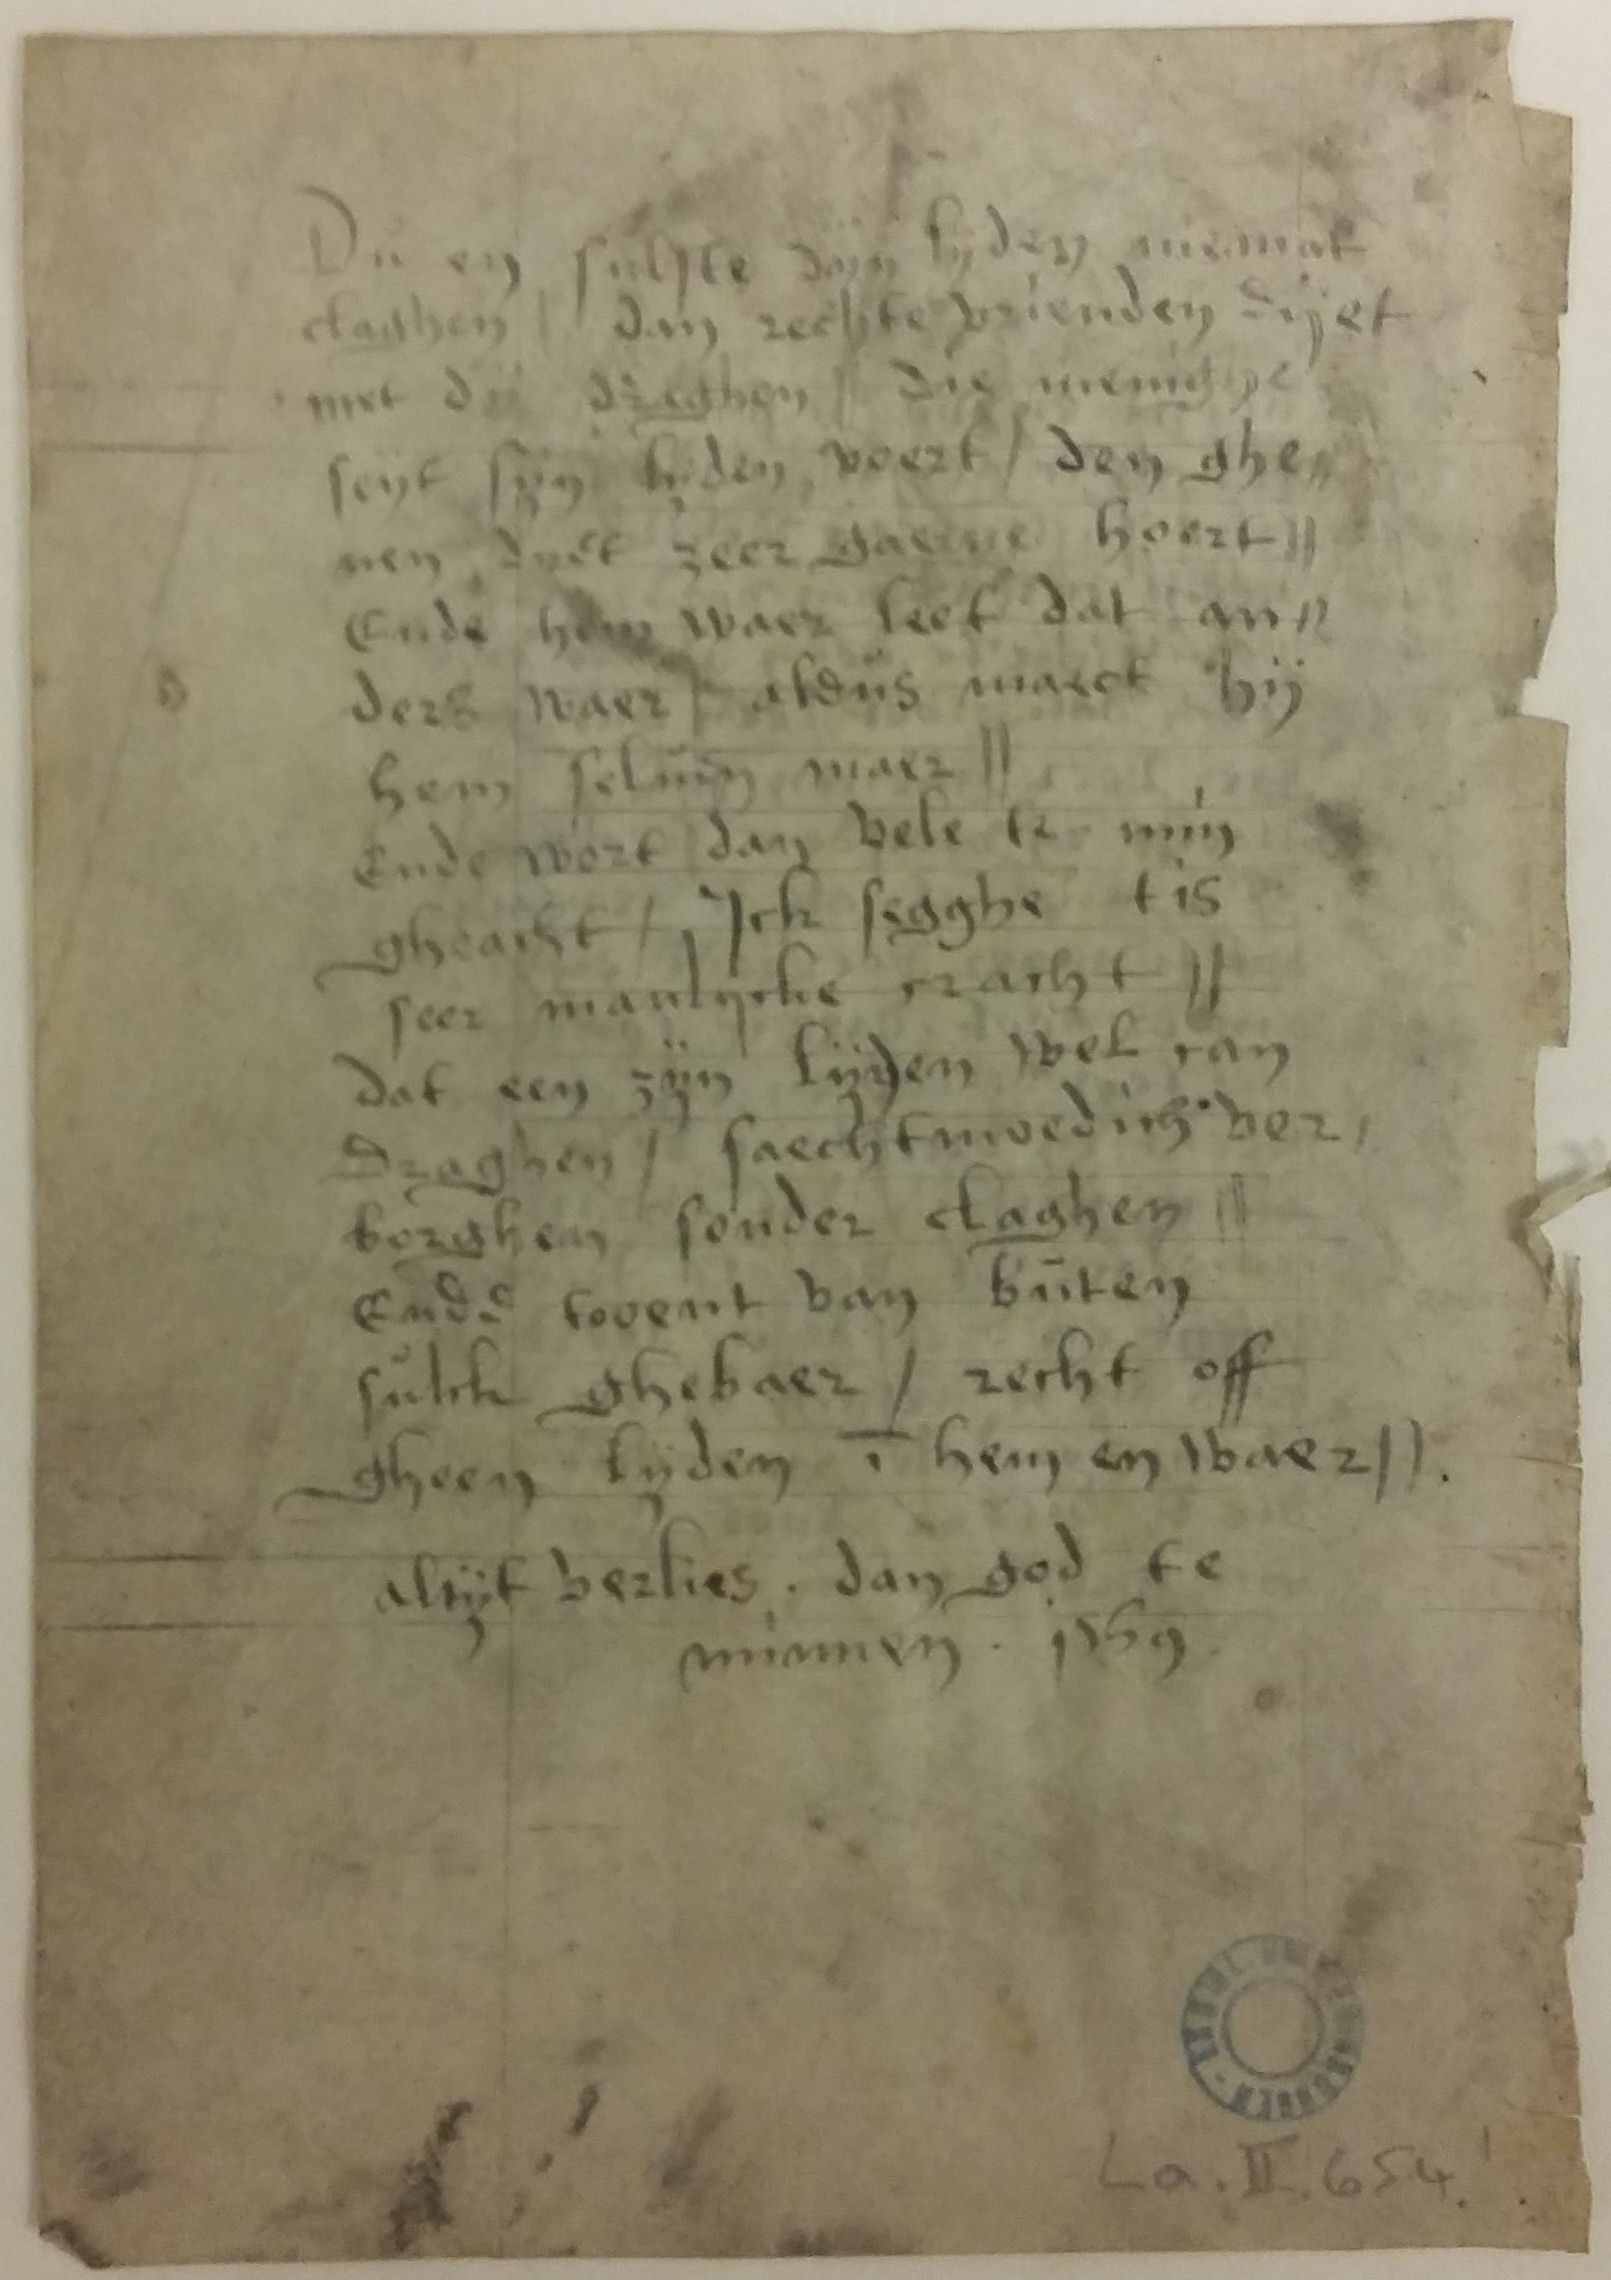 Du en sulste dijn lijden niemat
claghen / dan rechte vrienden dijet
met dij draghen // die menighe
seijt sijn lijden voert / den ghe//
nen dijet zeer gaerne hoert //
Ende hem waer leet dat an//
ders waer / aldus maect hij
hem seluen maer //
Ende wort dan vele te min
gheacht / Ick segghe tis
seer manlijcke cracht //
dat een zijn lijden wel can
draghen / saechtmoedich ver/
borghen sonder claghen //
Ende toent van buten
sulck ghebaer / recht off
gheen lijden ī hem en waer //.
altijt verlies . dan god te
minnen . 1569.
La. II. 654.